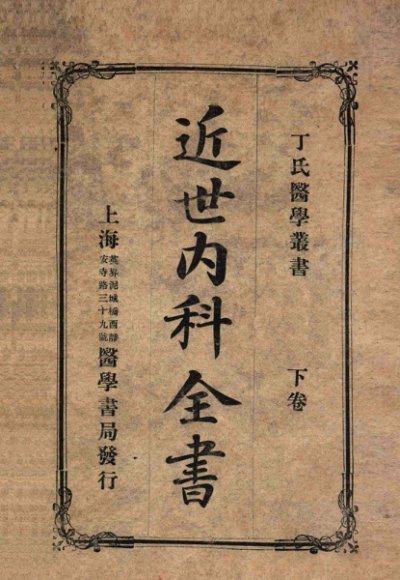 丁氏醫學叢書
下卷
近世内科全書
上海
英界泥城橋西靜
安寺路三十九號
醫學書局發行